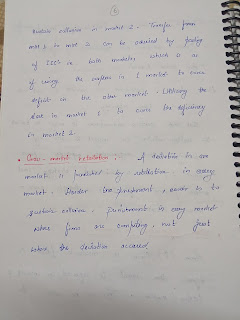 Sustain collusion in market 2. Transfer from
mkt 1 to mkt 2 can be counted by pooling
of ICCS in both markets which is as
if using the surplus in 1 market to cover
deficit in the other market. Utilizing the
slack in market 1 to cover the deficiency
in market 2.
• Cross-market retaliation :- A deviation in one
market is punished by retaliation in every
market. Harder the punishment, easier to
sustain collusion. Punishment in every market
where firms are competing, not just
where the deviation occured.